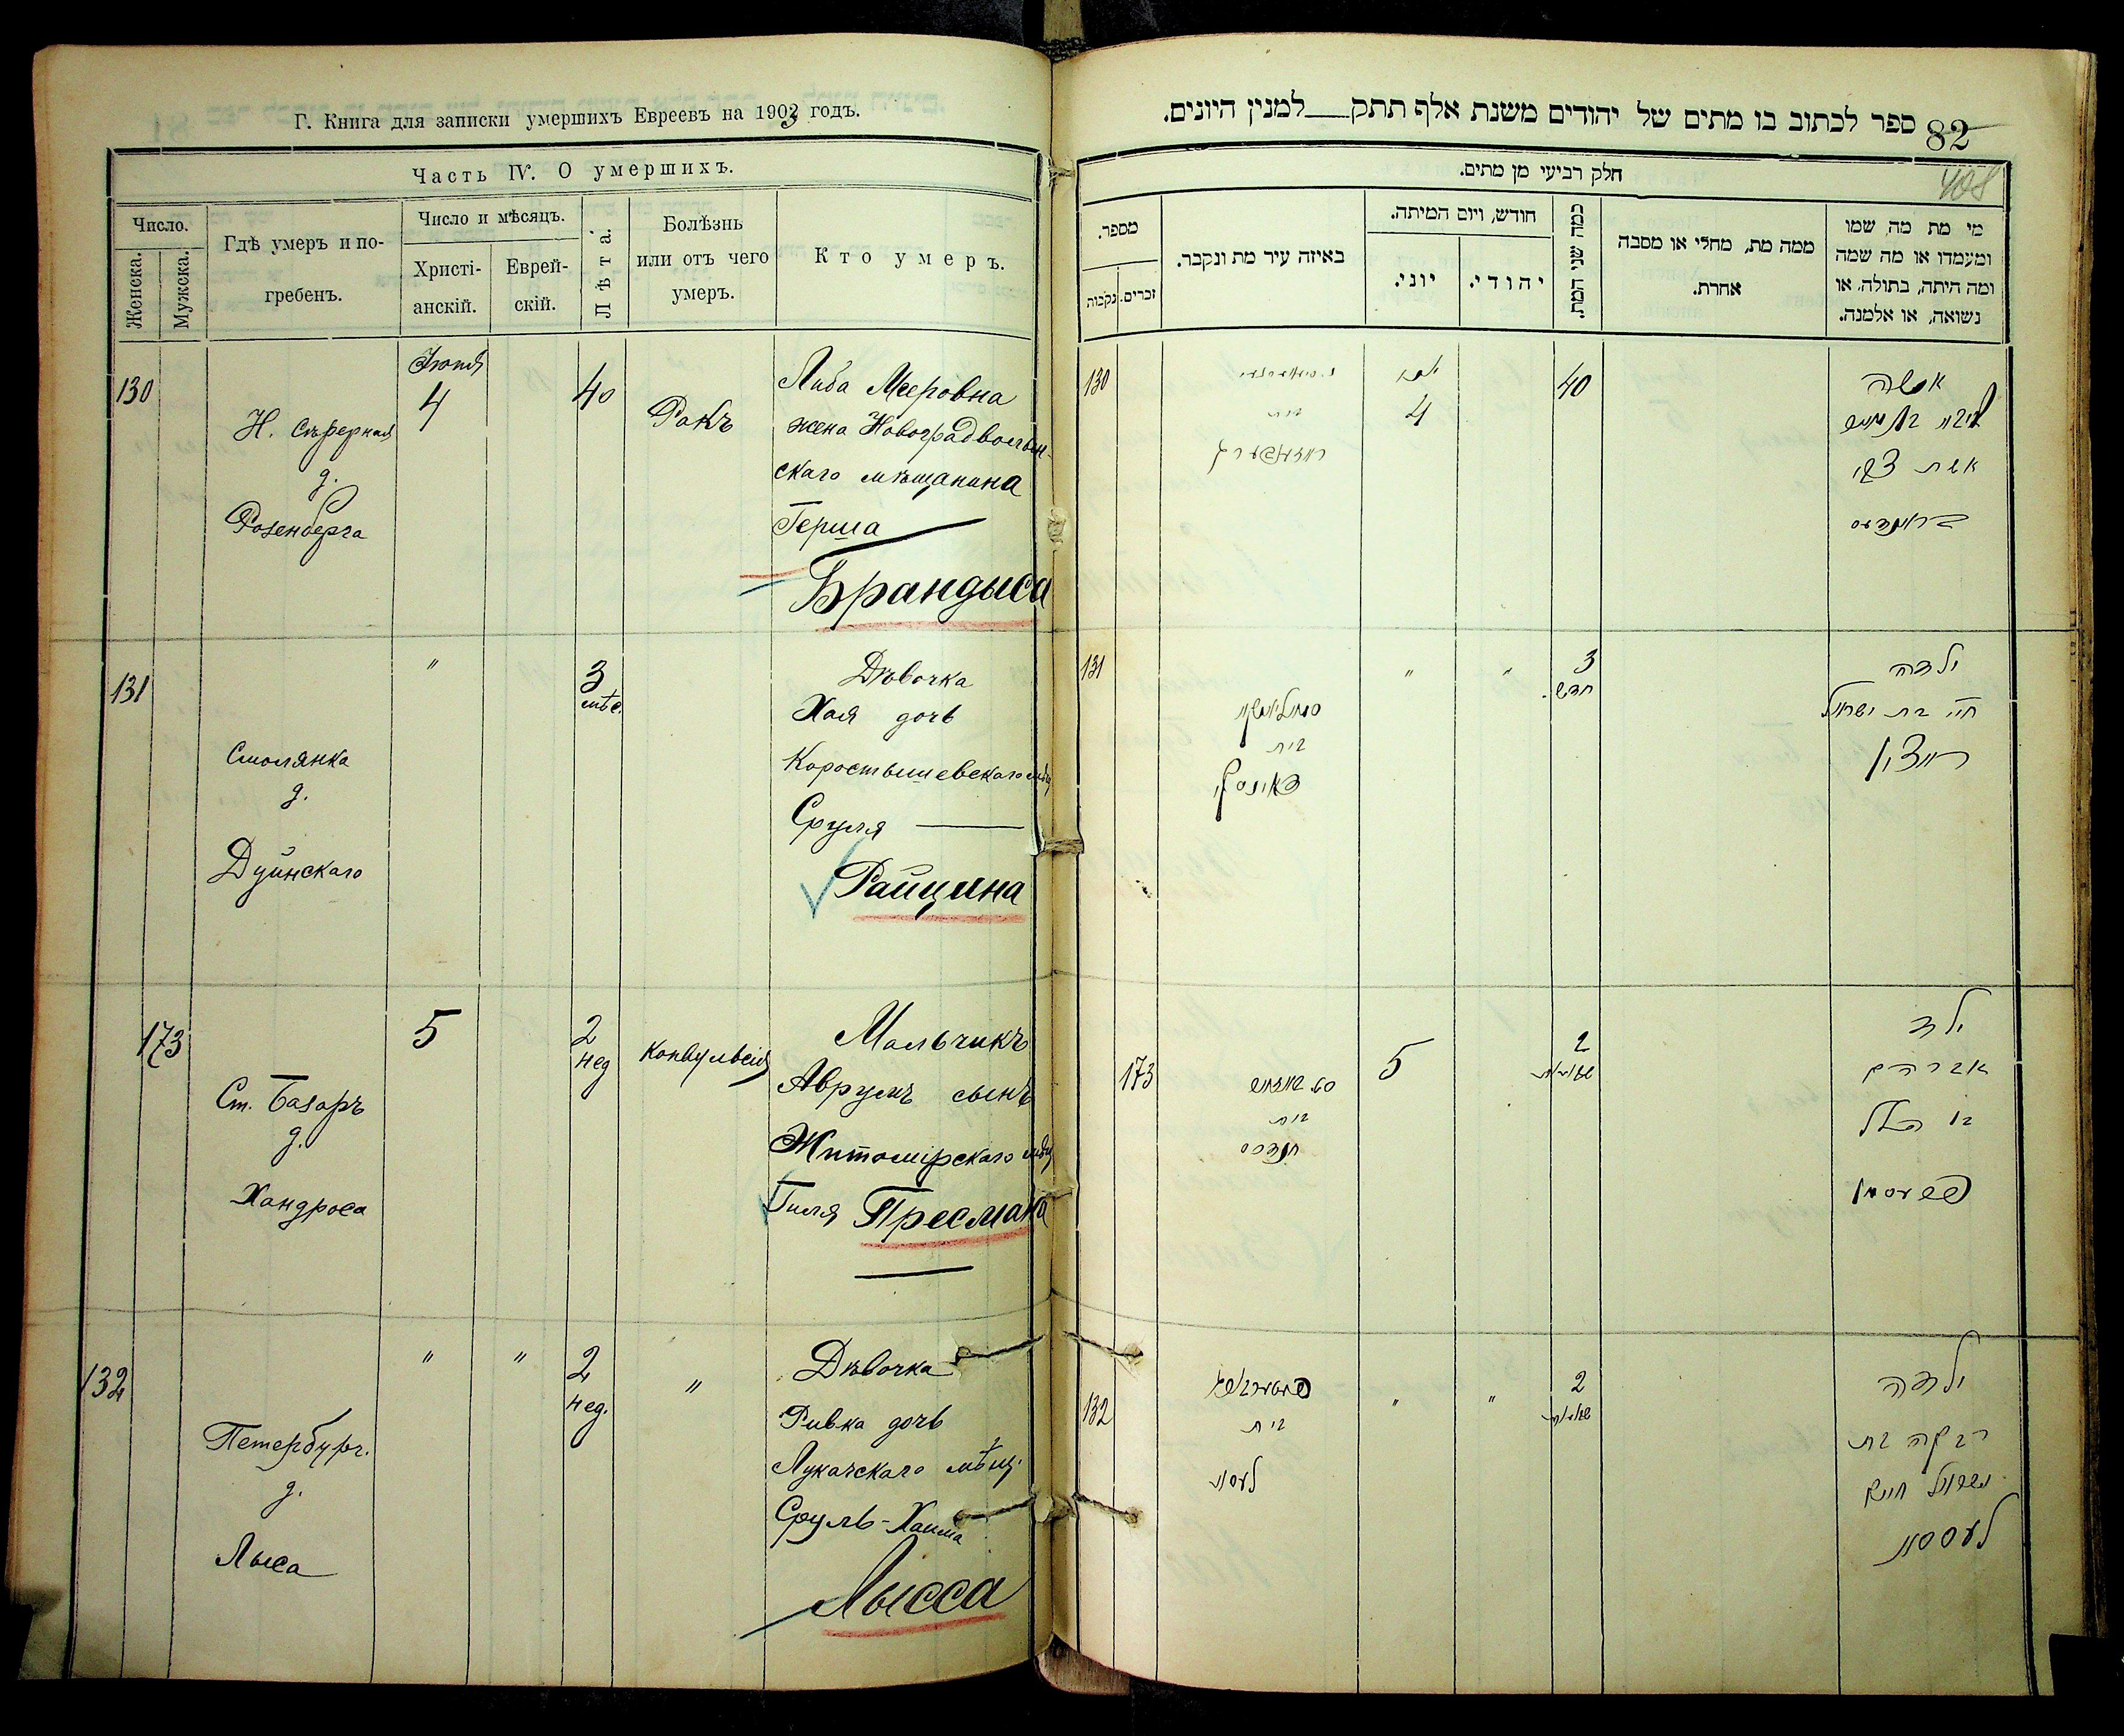 Г. Книга для записки умершихъ Евреевъ на 1903 годъ.
Часть IV. О умершихъ.
Число.
Женска.
Мужска.
Гдѣ умеръ и по-
гребенъ.
Число и мѣсяцъ.
Христі-
анскій.
Еврей-
скій.
Лѣта.
Болѣзнь
или отъ чего
умеръ.
Кто умеръ.
130
Н. Сѣверная
д.
Розенберга
Іюня
4
40
Ракъ
Либа Мееровна
жена Новоградволын-
скаго мѣщанина
Герша
Брандыса
131
Смолянка
д.
Дуинскаго
"
3
мѣс.
Дѣвочка
Хая дочь
Коростышевскаго мѣщ
Сруля
Райцина
173
Ст. Базаръ
д.
Хандроса
5
2
нед
Конвульсія
Мальчикъ
Аврумъ сынъ
Житомірскаго мѣщ
Гиля Пресмана
132
Петербург.
д.
Лыса
"
"
2
нед.
"
Дѣвочка
Ривка дочь
Лукачскаго мѣщ.
Сруль-Хаима
Лысса
ספר לכתוב בו מתים של יהודים משנת אלף תתק למנין היונים.
82
408
חלק רביעי מן מתים.
מספר.
נקבות
זכרים.
באיזה עיר מת ונקבר.
חודש, ויום המיתה.
יוני.
יהודי.
כמה שני המת.
ממה מת, מחלי או מסבה
אחרת.
מי מת מה שמו
ומעמדו או מה שמה
ומה היתה, בתולה, או
נשואה, או אלמנה.
130
בית
ראזענבערג
4
40
אשה
ליבא בת מאיר
אשת צבי
בראנדעס
131
סמוליאנקא
בית
"
"
3
חדש.
ילדה
חי' בת ישראל
רייצין
173
סט. באזאר
בית
חנדרס
5
2
שבועות
ילד
אברהם
בן הלל
פרעסמאן
132
פעטערבורג
בית
ליסא
"
"
2
שבועות
ילדה
רבקה בת
ישראל חיים
ליססא